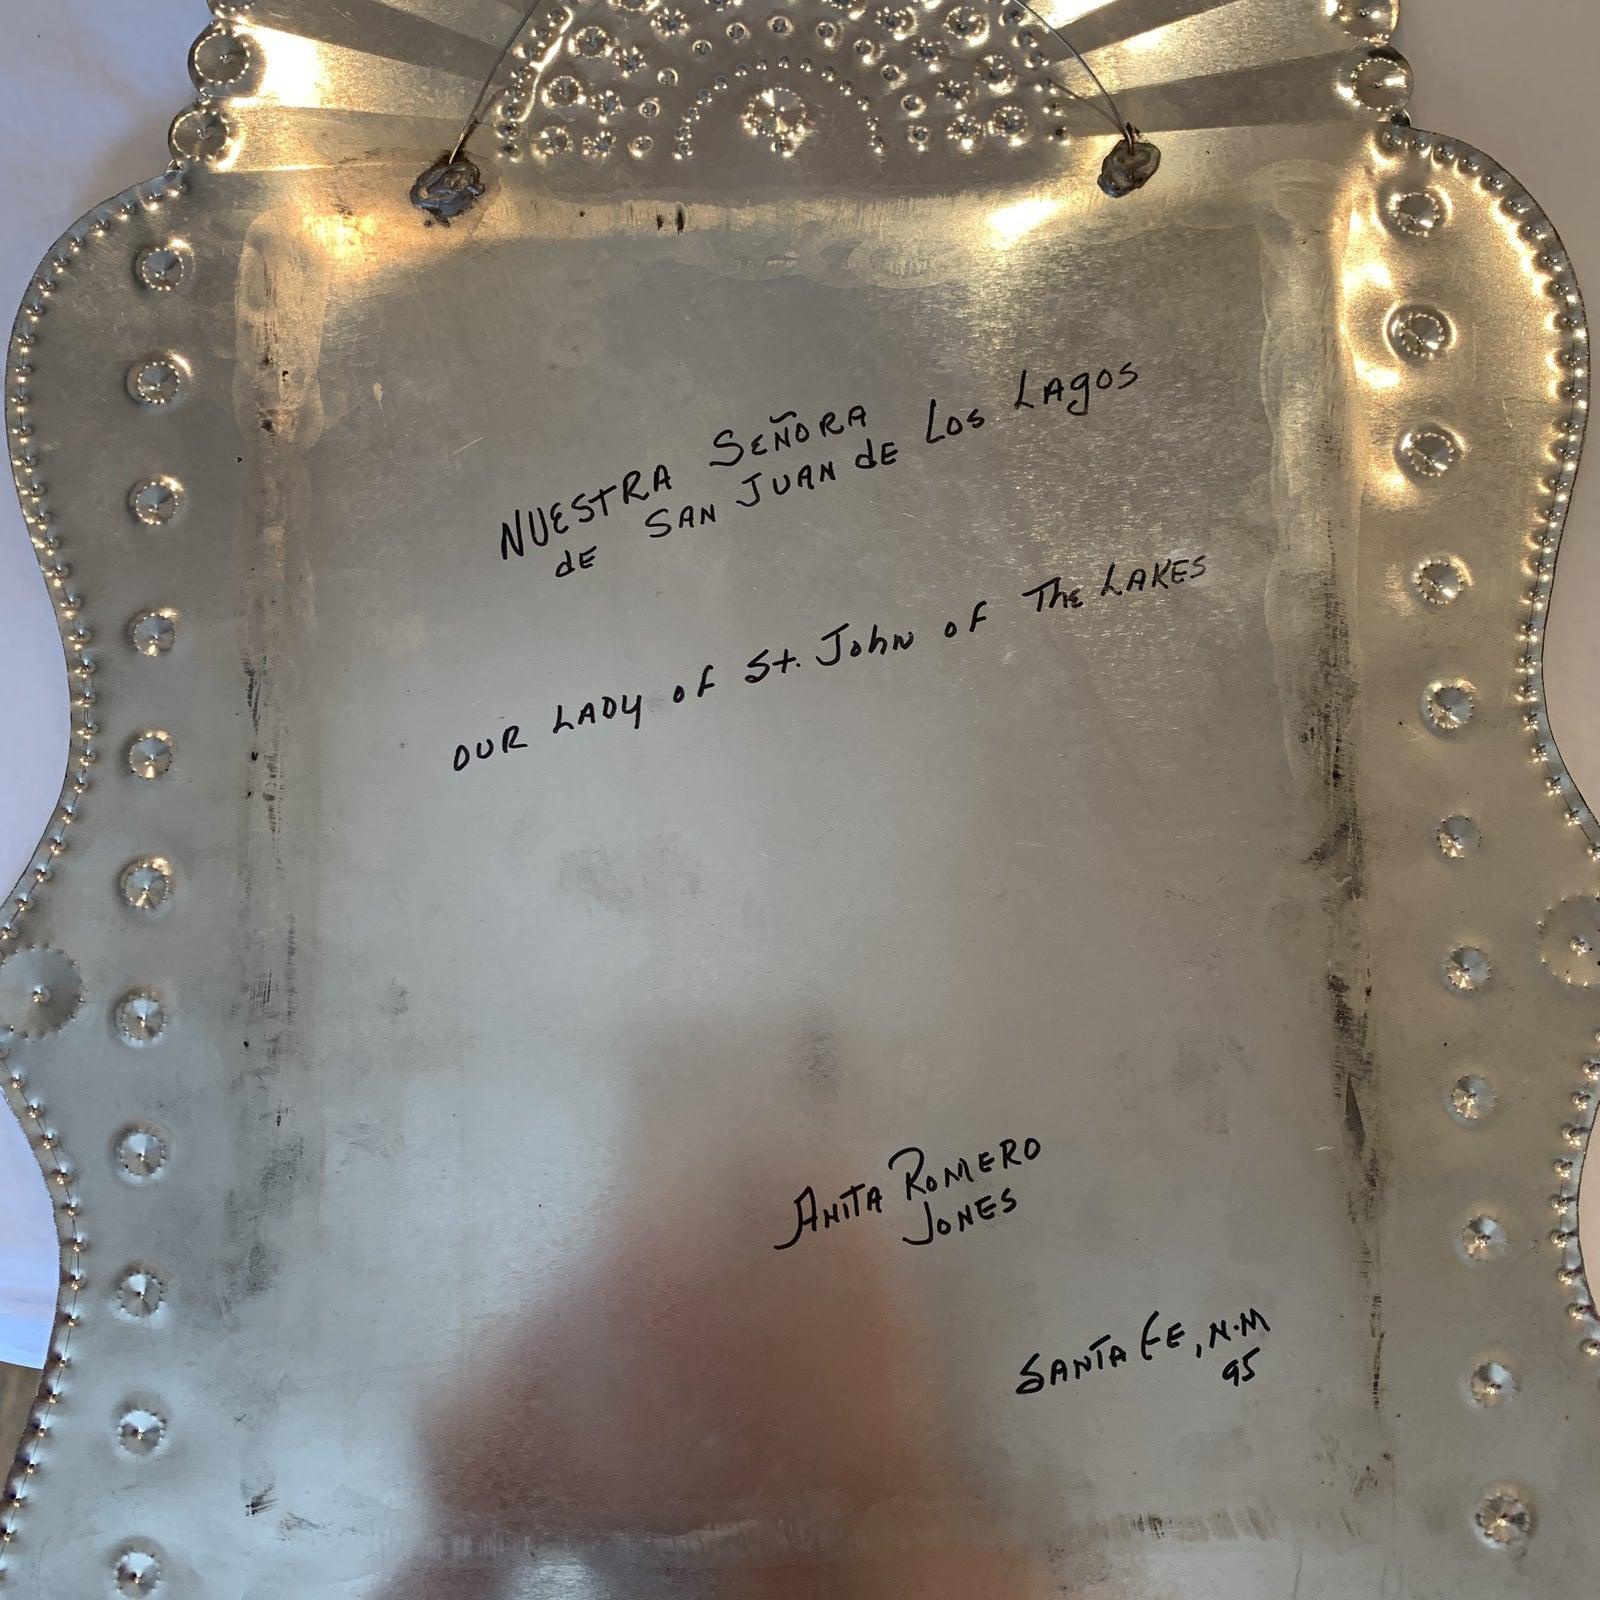 NUESTRA SEÑORA
de SAN JUAN de Los LAgos
OUR LADY of St. John of The LAKES
ANITA ROMERO
JONES
SANTA FE, N.M
95